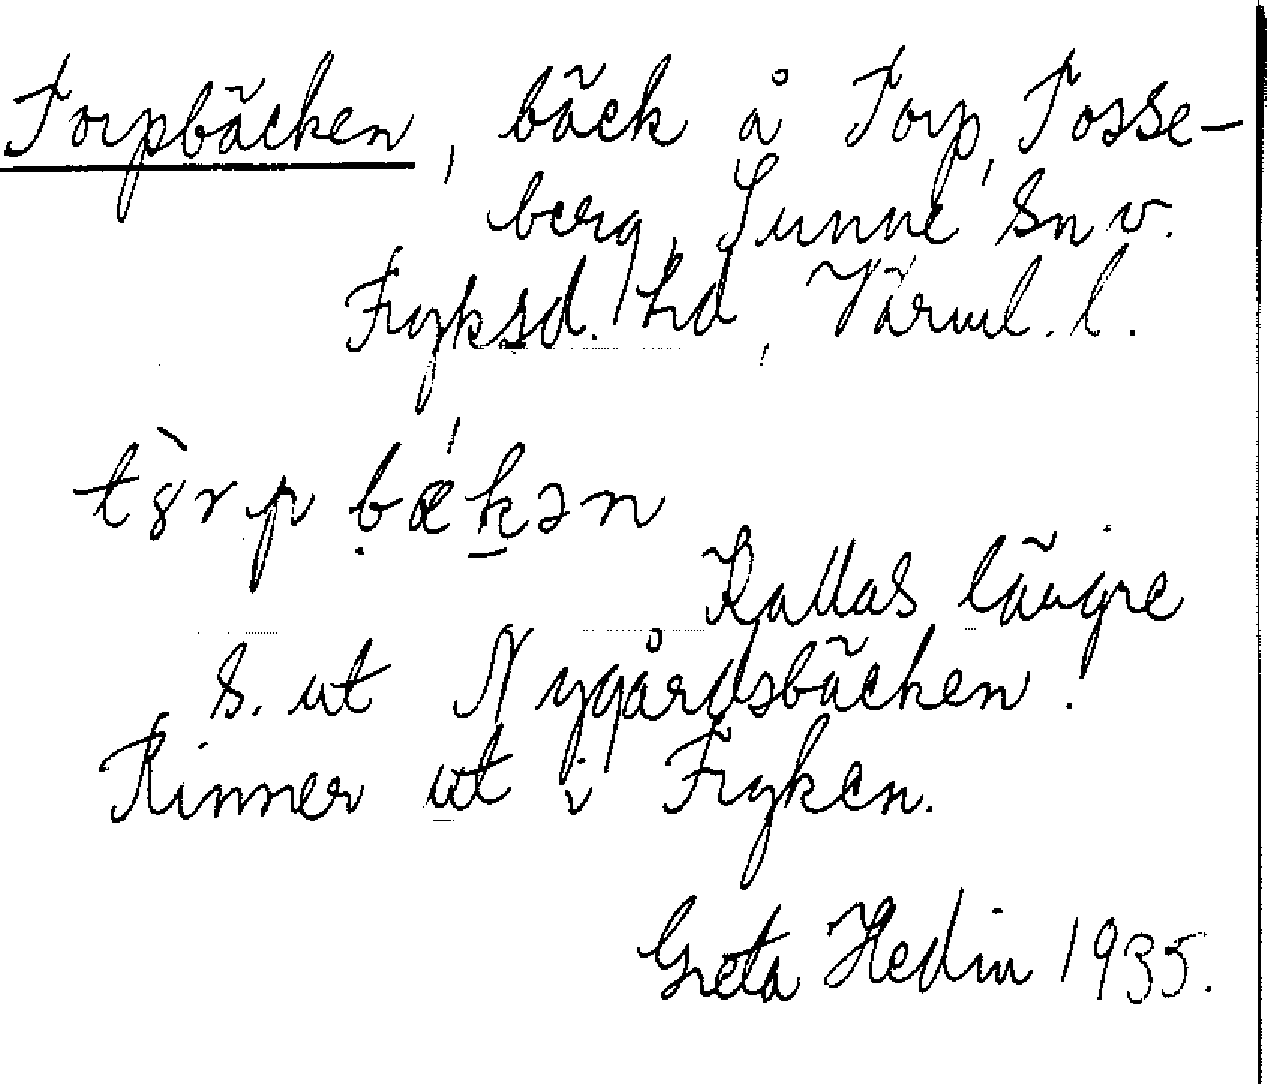 Torpbäcken, bäck å Torp, Tosse-
berg, Sunne sn v.
Fryksd. hd, Värml. l.
tȣ̀rp bǽkən
Kallas längre
s. ut Nygårdsbäcken.
Rinner ut i Fryken.
Greta Hedin 1935.